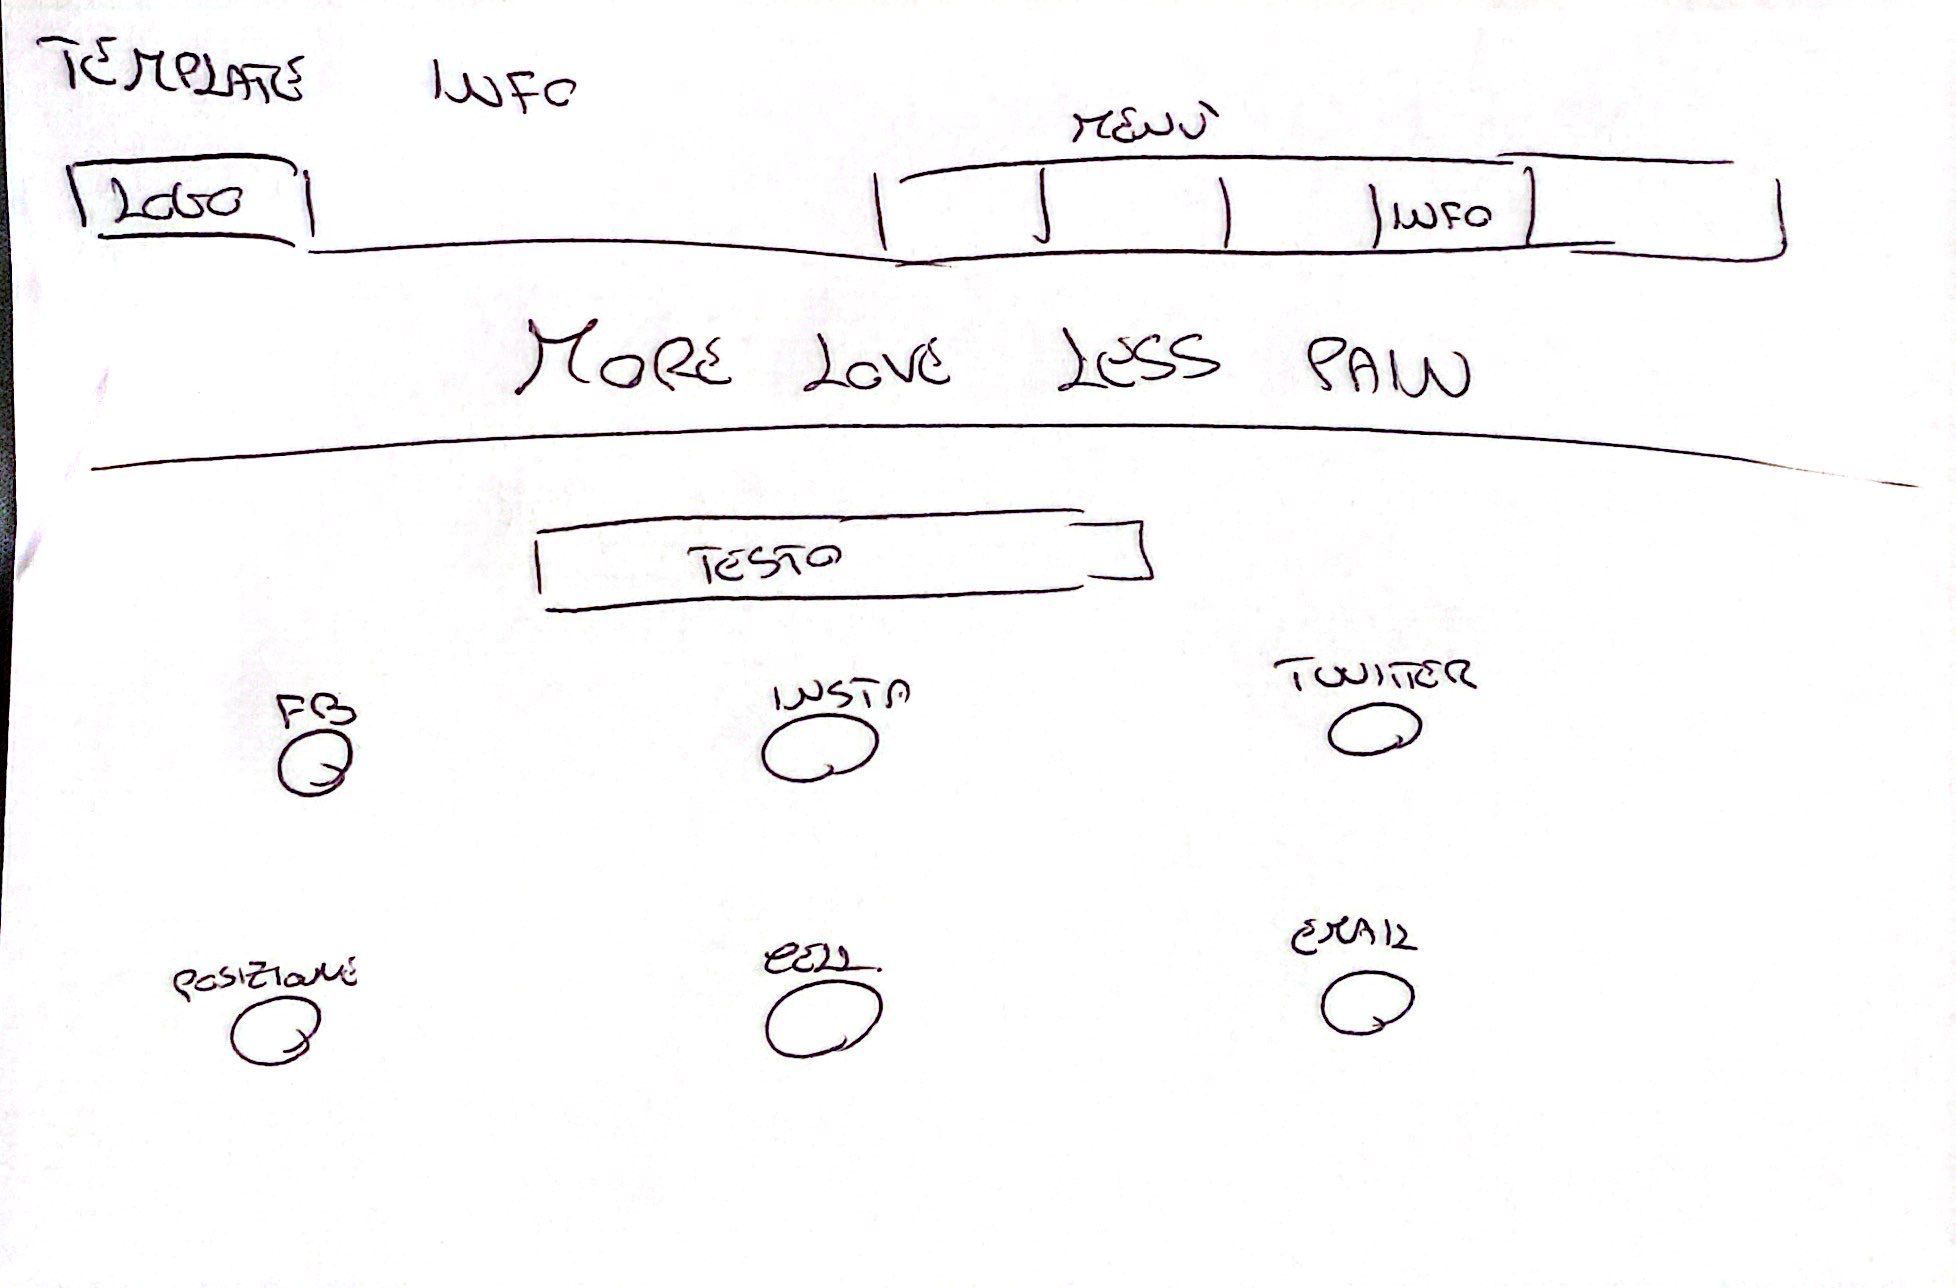 TEMPLATE INFO
MENÙ
LOGO
INFO
MORE LOVE LESS PAIN
TESTO
FB
INSTA
TWITTER
POSIZIONE
CELL.
EMAIL